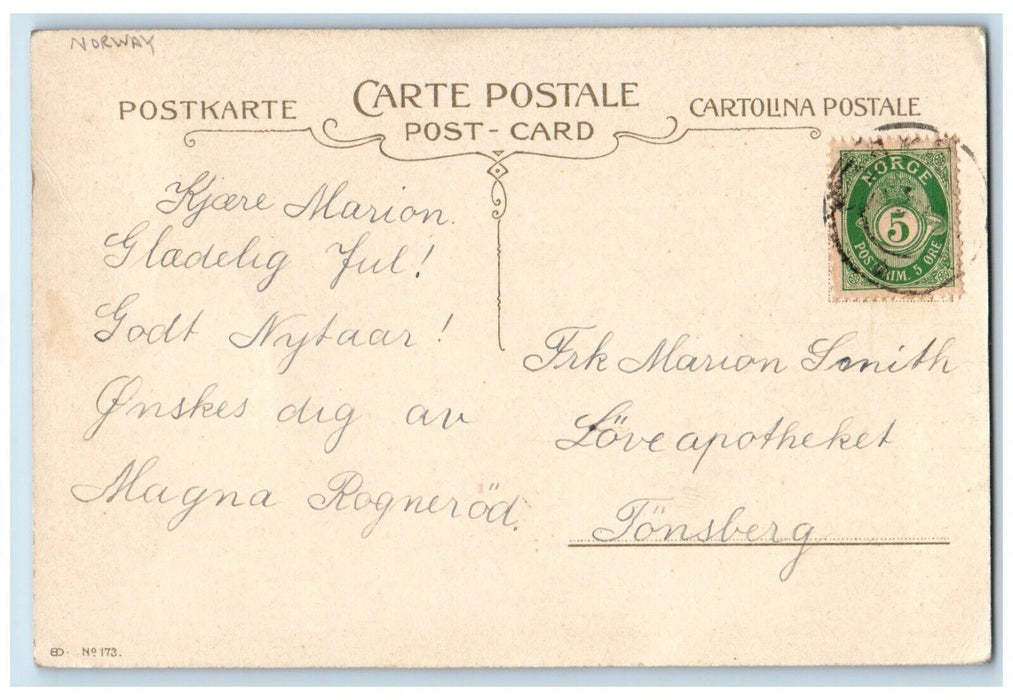 NORWAY
POSTKARTE
CARTE POSTALE
CARTOLINA POSTALE
POST-CARD
NORGE
5
POSTFRIM. 5 ØRE
Kjære Marion.
Glædelig Jul!
Godt Nytaar!
Ønskes dig av
Magna Rogneröd.
Frk Marion Smith
Löveapotheket
Tönsberg
ED. No 173.